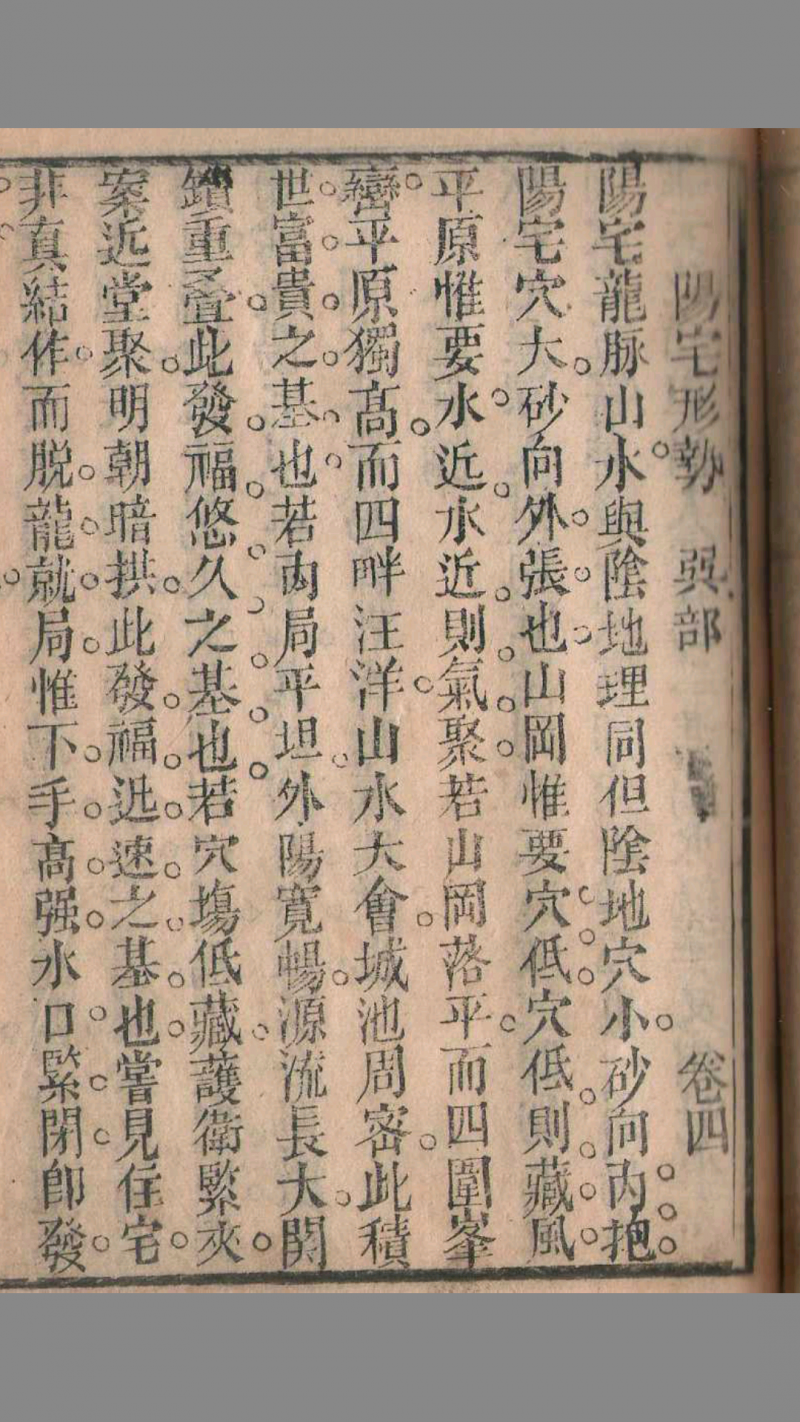 陽宅形勢　巽部　卷四
陽宅龍脉山水與陰地理同但陰地穴小砂向內抱
陽宅穴大砂向外張也山岡惟要穴低穴低則藏風
平原惟要水近水近則氣聚若山岡落平而四圍峯
巒平原獨高而四畔汪洋山水大會城池周密此積
世富貴之基也若內局平坦外陽寬暢源流長大關
鎖重疊此發福悠久之基也若穴塲低藏護衛緊夾
案近堂聚明朝暗拱此發福迅速之基也嘗見住宅
非真結作而脫龍就局惟下手高强水口緊閉即發